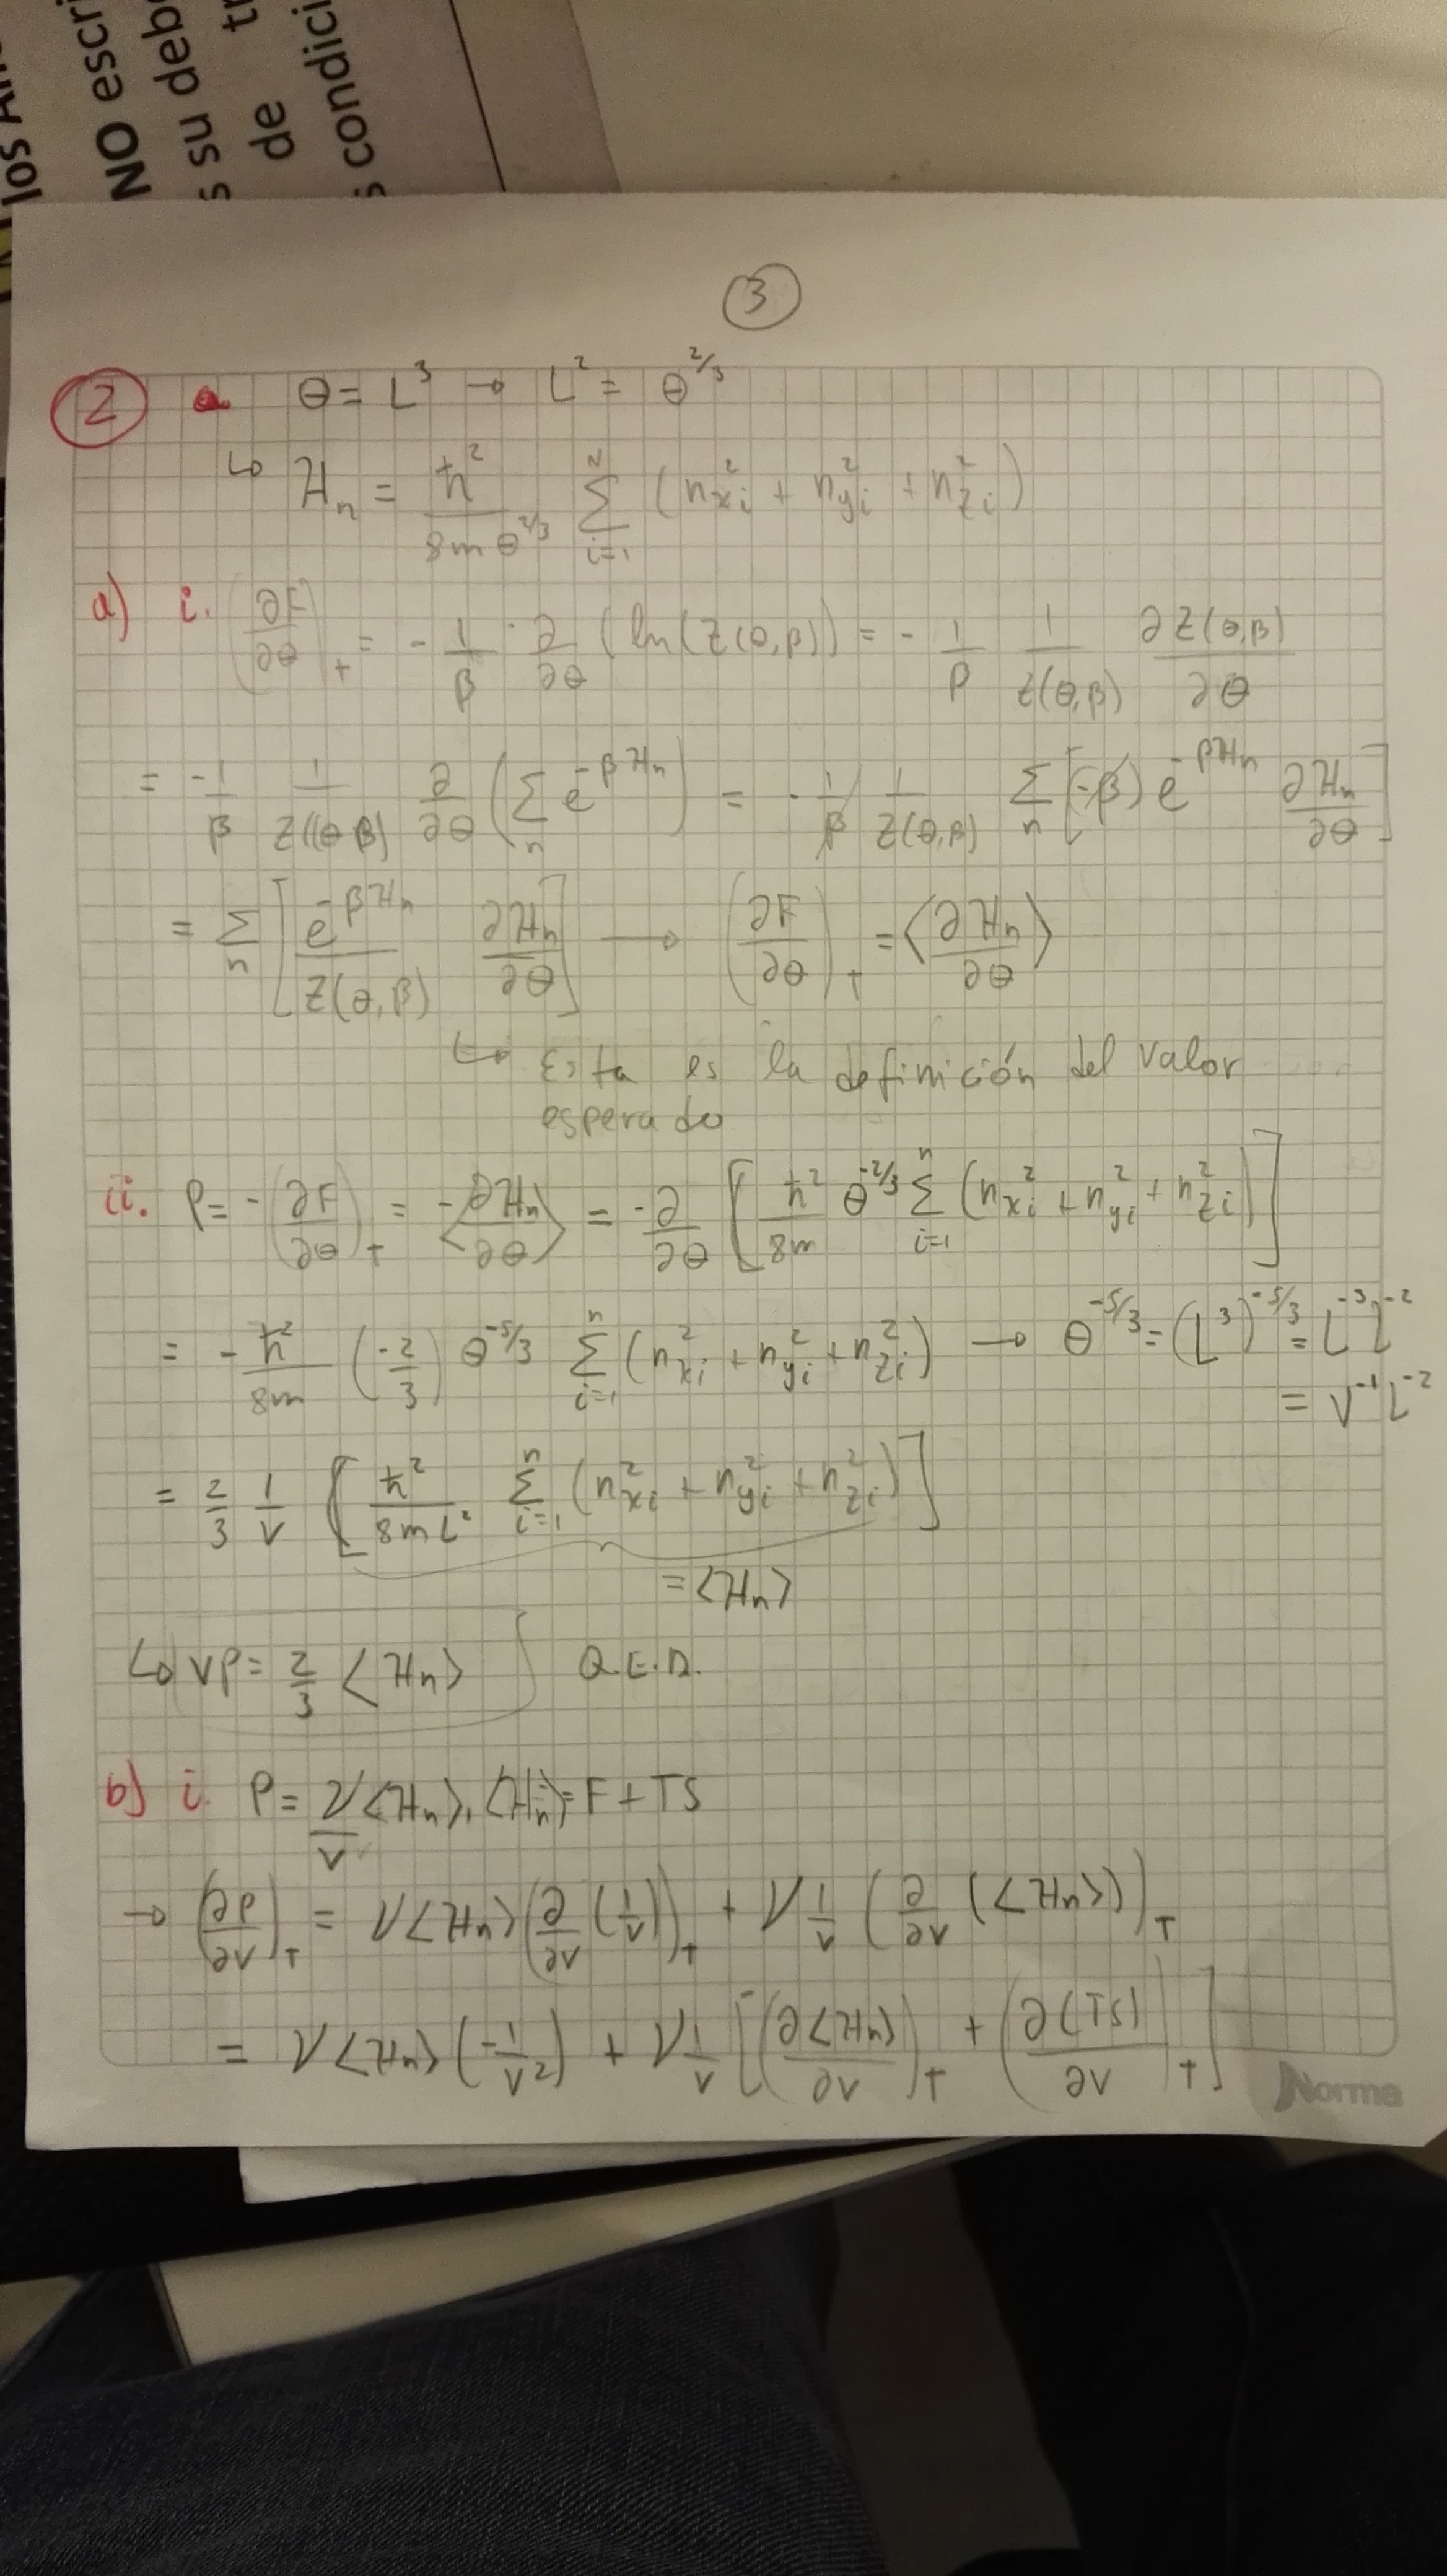 los
NO escri
s su deb
de t
s condici
3
2 a θ = L³ → L² = θ^{2/3}
↳ H_n = ħ²/(8mθ^{2/3}) Σ_{i=1}^{N} (n_{xi}² + n_{yi}² + n_{zi}²)
a) i. (∂F/∂θ)_T = -1/β · ∂/∂θ (ln(Z(θ,β))) = -1/β 1/Z(θ,β) ∂Z(θ,β)/∂θ
= -1/β 1/Z((θ β) ∂/∂θ (Σ_n e^{-βH_n}) = -1/β 1/Z(θ,β) Σ_n [(-β) e^{-βH_n} ∂H_n/∂θ]
= Σ_n [e^{-βH_n}/Z(θ,β) ∂H_n/∂θ] → (∂F/∂θ)_T = <∂H_n/∂θ>
↳ Esta es la definición del valor
esperado
ii. P = -(∂F/∂θ)_T = -<∂H_n/∂θ> = -∂/∂θ [ħ²/8m θ^{-2/3} Σ_{i=1}^{n} (n_{xi}² + n_{yi}² + n_{zi}²)]
= -ħ²/8m (-2/3) θ^{-5/3} Σ_{i=1}^{n} (n_{xi}² + n_{yi}² + n_{zi}²) → θ^{-5/3} = (L³)^{-5/3} = L^{-3} L^{-2}
= V^{-1} L^{-2}
= 2/3 1/V [ħ²/(8mL²) Σ_{i=1}^{n} (n_{xi}² + n_{yi}² + n_{zi}²)]
= <H_n>
↳ VP = 2/3 <H_n> Q.E.D.
b) i. P = ν/V <H_n>, <H_n> = F + TS
→ (∂P/∂V)_T = ν<H_n>(∂/∂V (1/V))_T + ν 1/V (∂/∂V (<H_n>))_T
= ν<H_n>(-1/V²) + ν 1/V [(∂<H_n>/∂V)_T + (∂(TS)/∂V)_T]
Norma